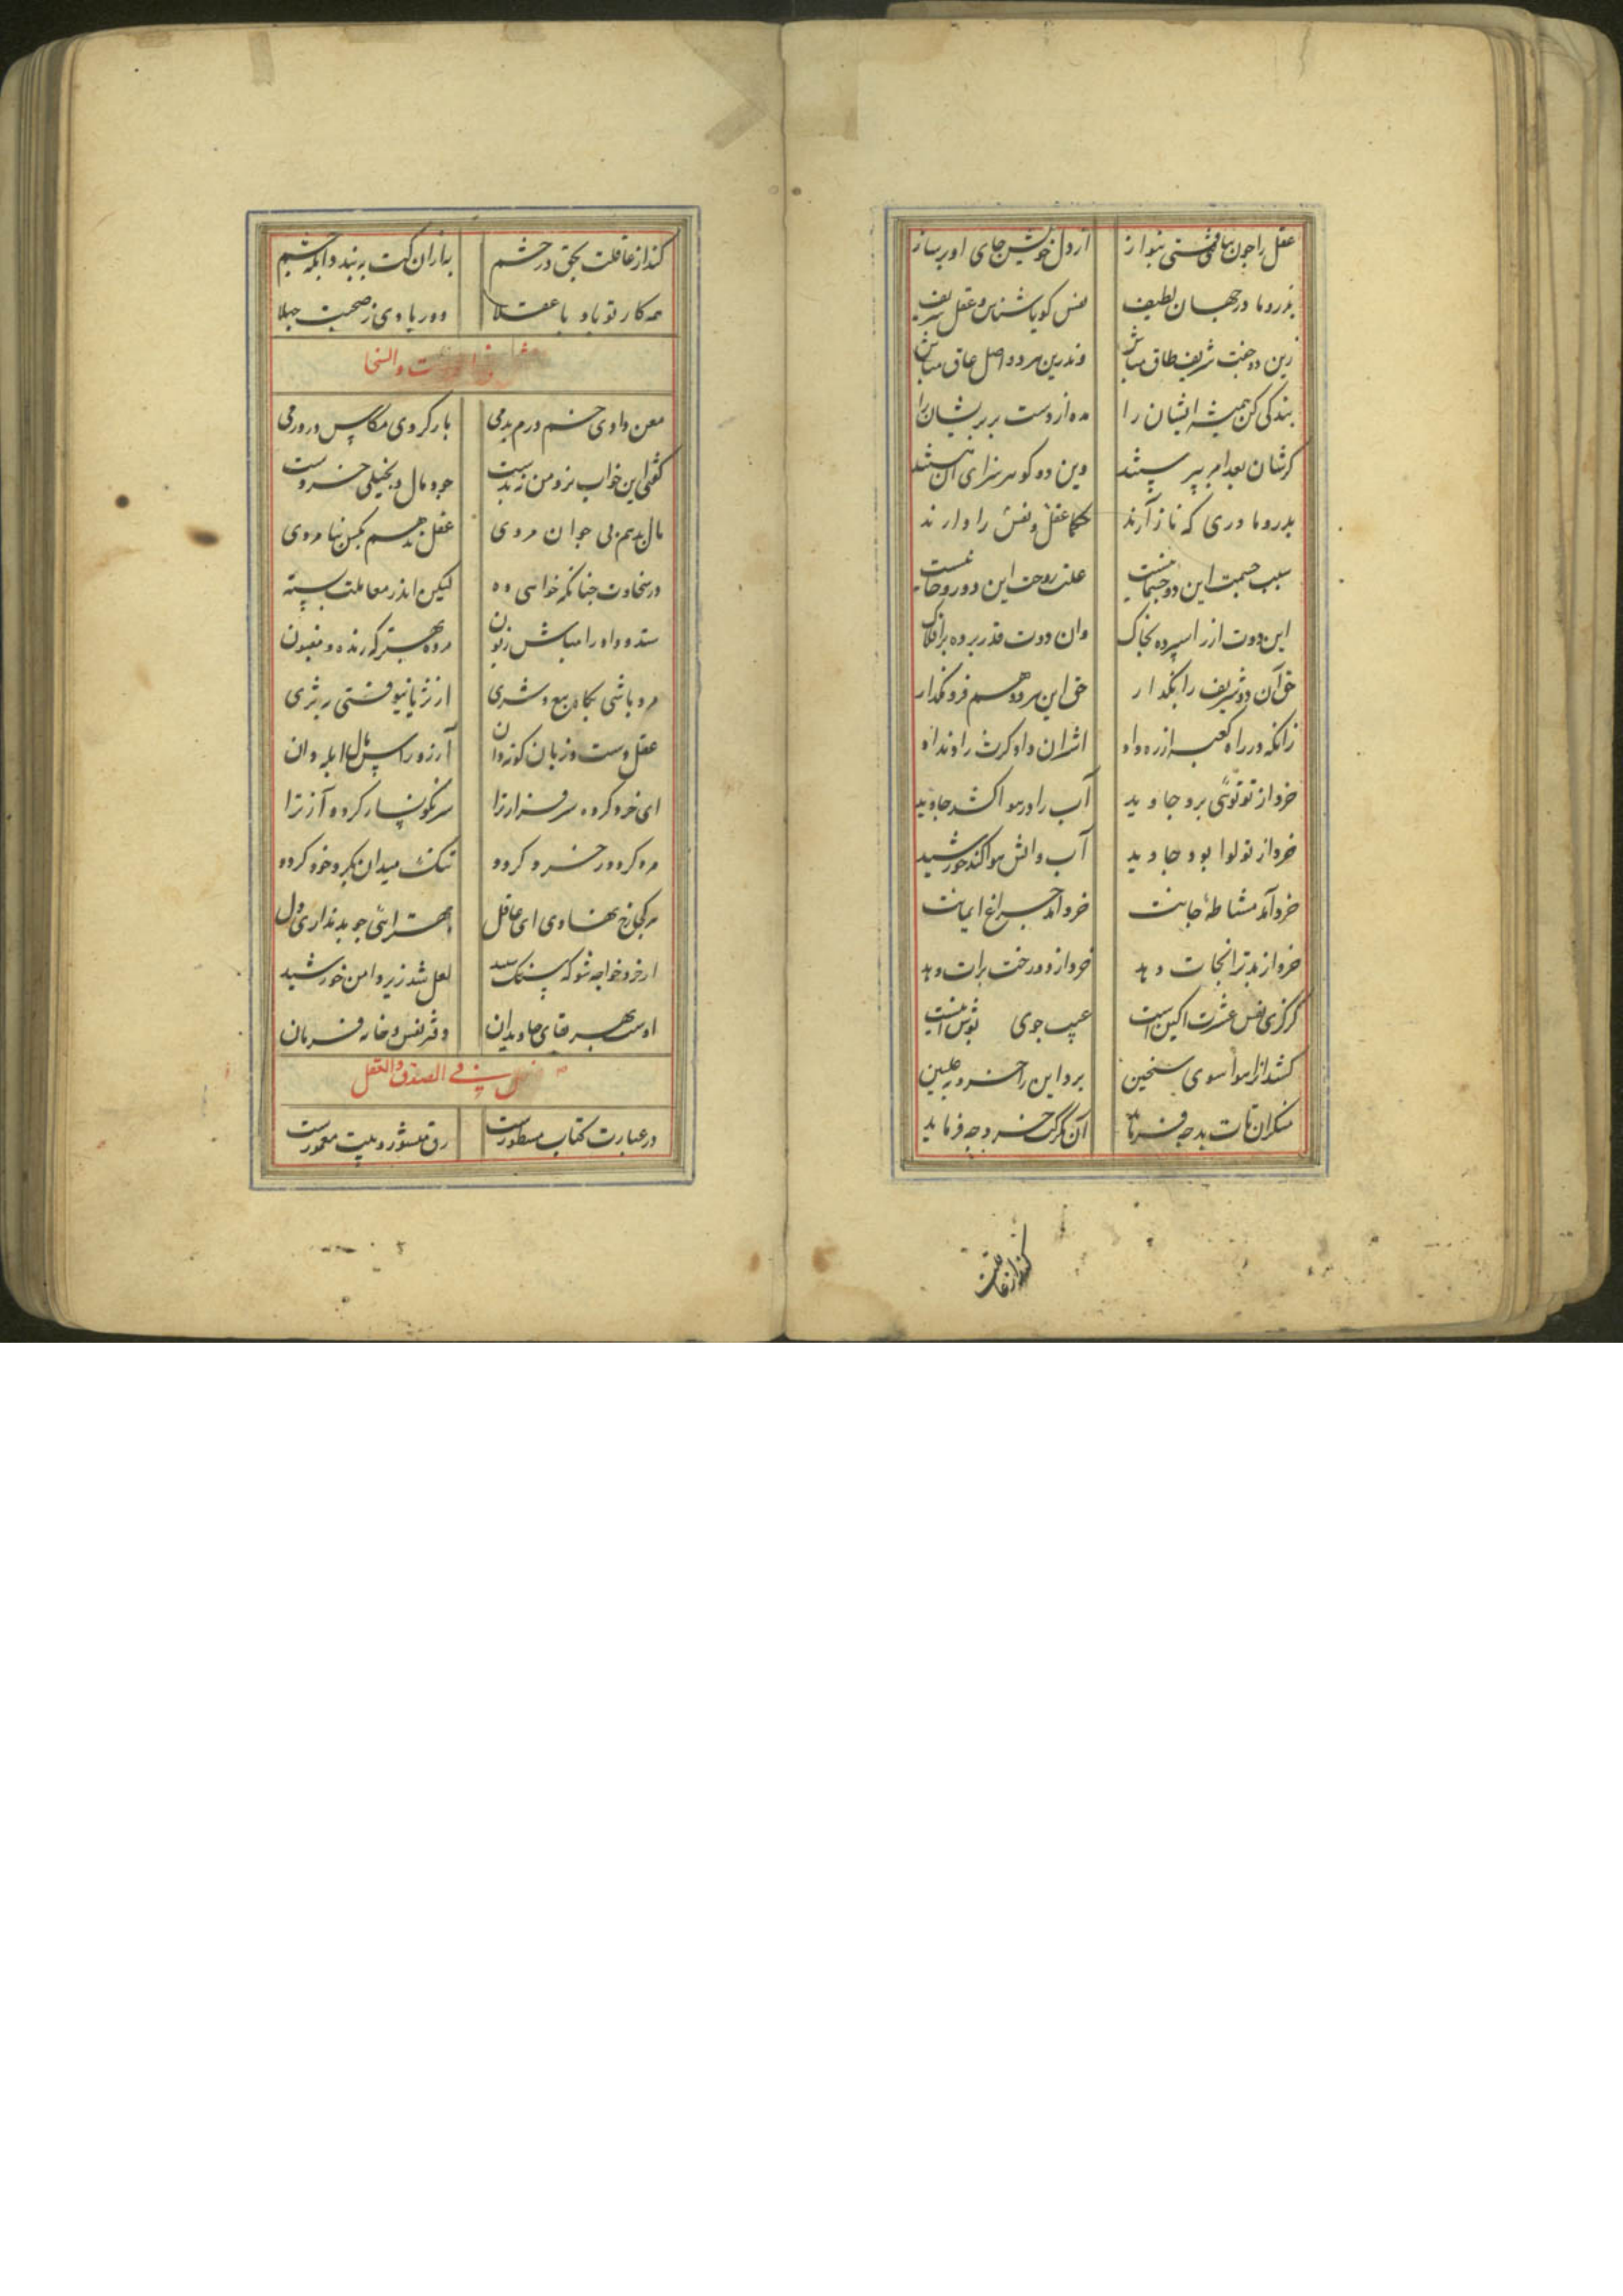 عقل را چون بیافتی بنواز از دل خویش جای او پرساز
پدر و مادر جهان لطیف نفس گویا شناس و عقل شریف
زین دو جفت شریف طاق مباش وندرین هر دو اصل عاق مباش
بندگی کن همیشه ایشان را مده از دست بر پریشان را
گرشان بعد امر بپرستند وین دو گوهر سزای آن هستند
پدر و مادری که ناز آرند حکما عقل و نفس را دارند
سبب جسمت این دو جسمانیست علت روحت این دو روحانیست
این دوت از زر اسپرده بخاک وان دوت قدر برده بر افلاک
حق آن دو شریف را بگذار حق این هر دو هم فرو مگذار
زانکه در راه کعبه از ره داد اشتر آن داد کت را و نداد
خرد از تو توئی برد جاوید آب را در هوا کشد جاوید
خرد از تو لوا بود جاوید آب و آتش هوا کند خورشید
خرد آمد مشاطه جانت خرد آمد چراغ ایمانت
خرد از بد ترا نجات دهد خرد از دورخت برات دهد
گر گزی نفس عشرت آگین است عیب جوی نوش آمنیست
کشد آنرا هوا سوی سجین برد این را خرد به علیین
منگر آن کت بد چه فرماید آن نگر کت خرد چه فرماید
کند از عاقلت
کند از عاقلت بحق در خشم به از آن کت به بند و ابله چشم
همه کار تو باد با عقلا دور بادی ز صحبت جهلا
والسخا
معن دادی خشم درم بدمی باز کردی مکاس در درمی
گفتی این خواب نزد من زبدست جود مال و بخیلی خردست
مال بدهم بی جوان مردی عقل ندهم بکس بنامردی
در سخاوت چنانکه خواهی ده لیکن اندر معاملت بسته
ستد و داد را مباش زبون مرده بهتر که زنده و مغبون
مرد باشی بگاه بیع و شری از ثریا نیوفتی به ثری
عقل دست و زبان کوته دان آرزو راس مال ابله دان
ای خرد کرده سرفراز ترا سرنگونسار کرده آز ترا
مرد کرد در خرد گردد تنگ میدان بگرد خود گردد
هر کجا رخ نهادی ای عاقل مهترانی جو بد نداری دل
از خرد خواجه شو که سنگ سپید لعل شد زیر دامن خورشید
اوست بهر بقای جاویدان دفتر نفس و خانه فرمان
فی الصدق والعقل
در عبارت کتاب مسطورست رق منشور و بیت معمورست